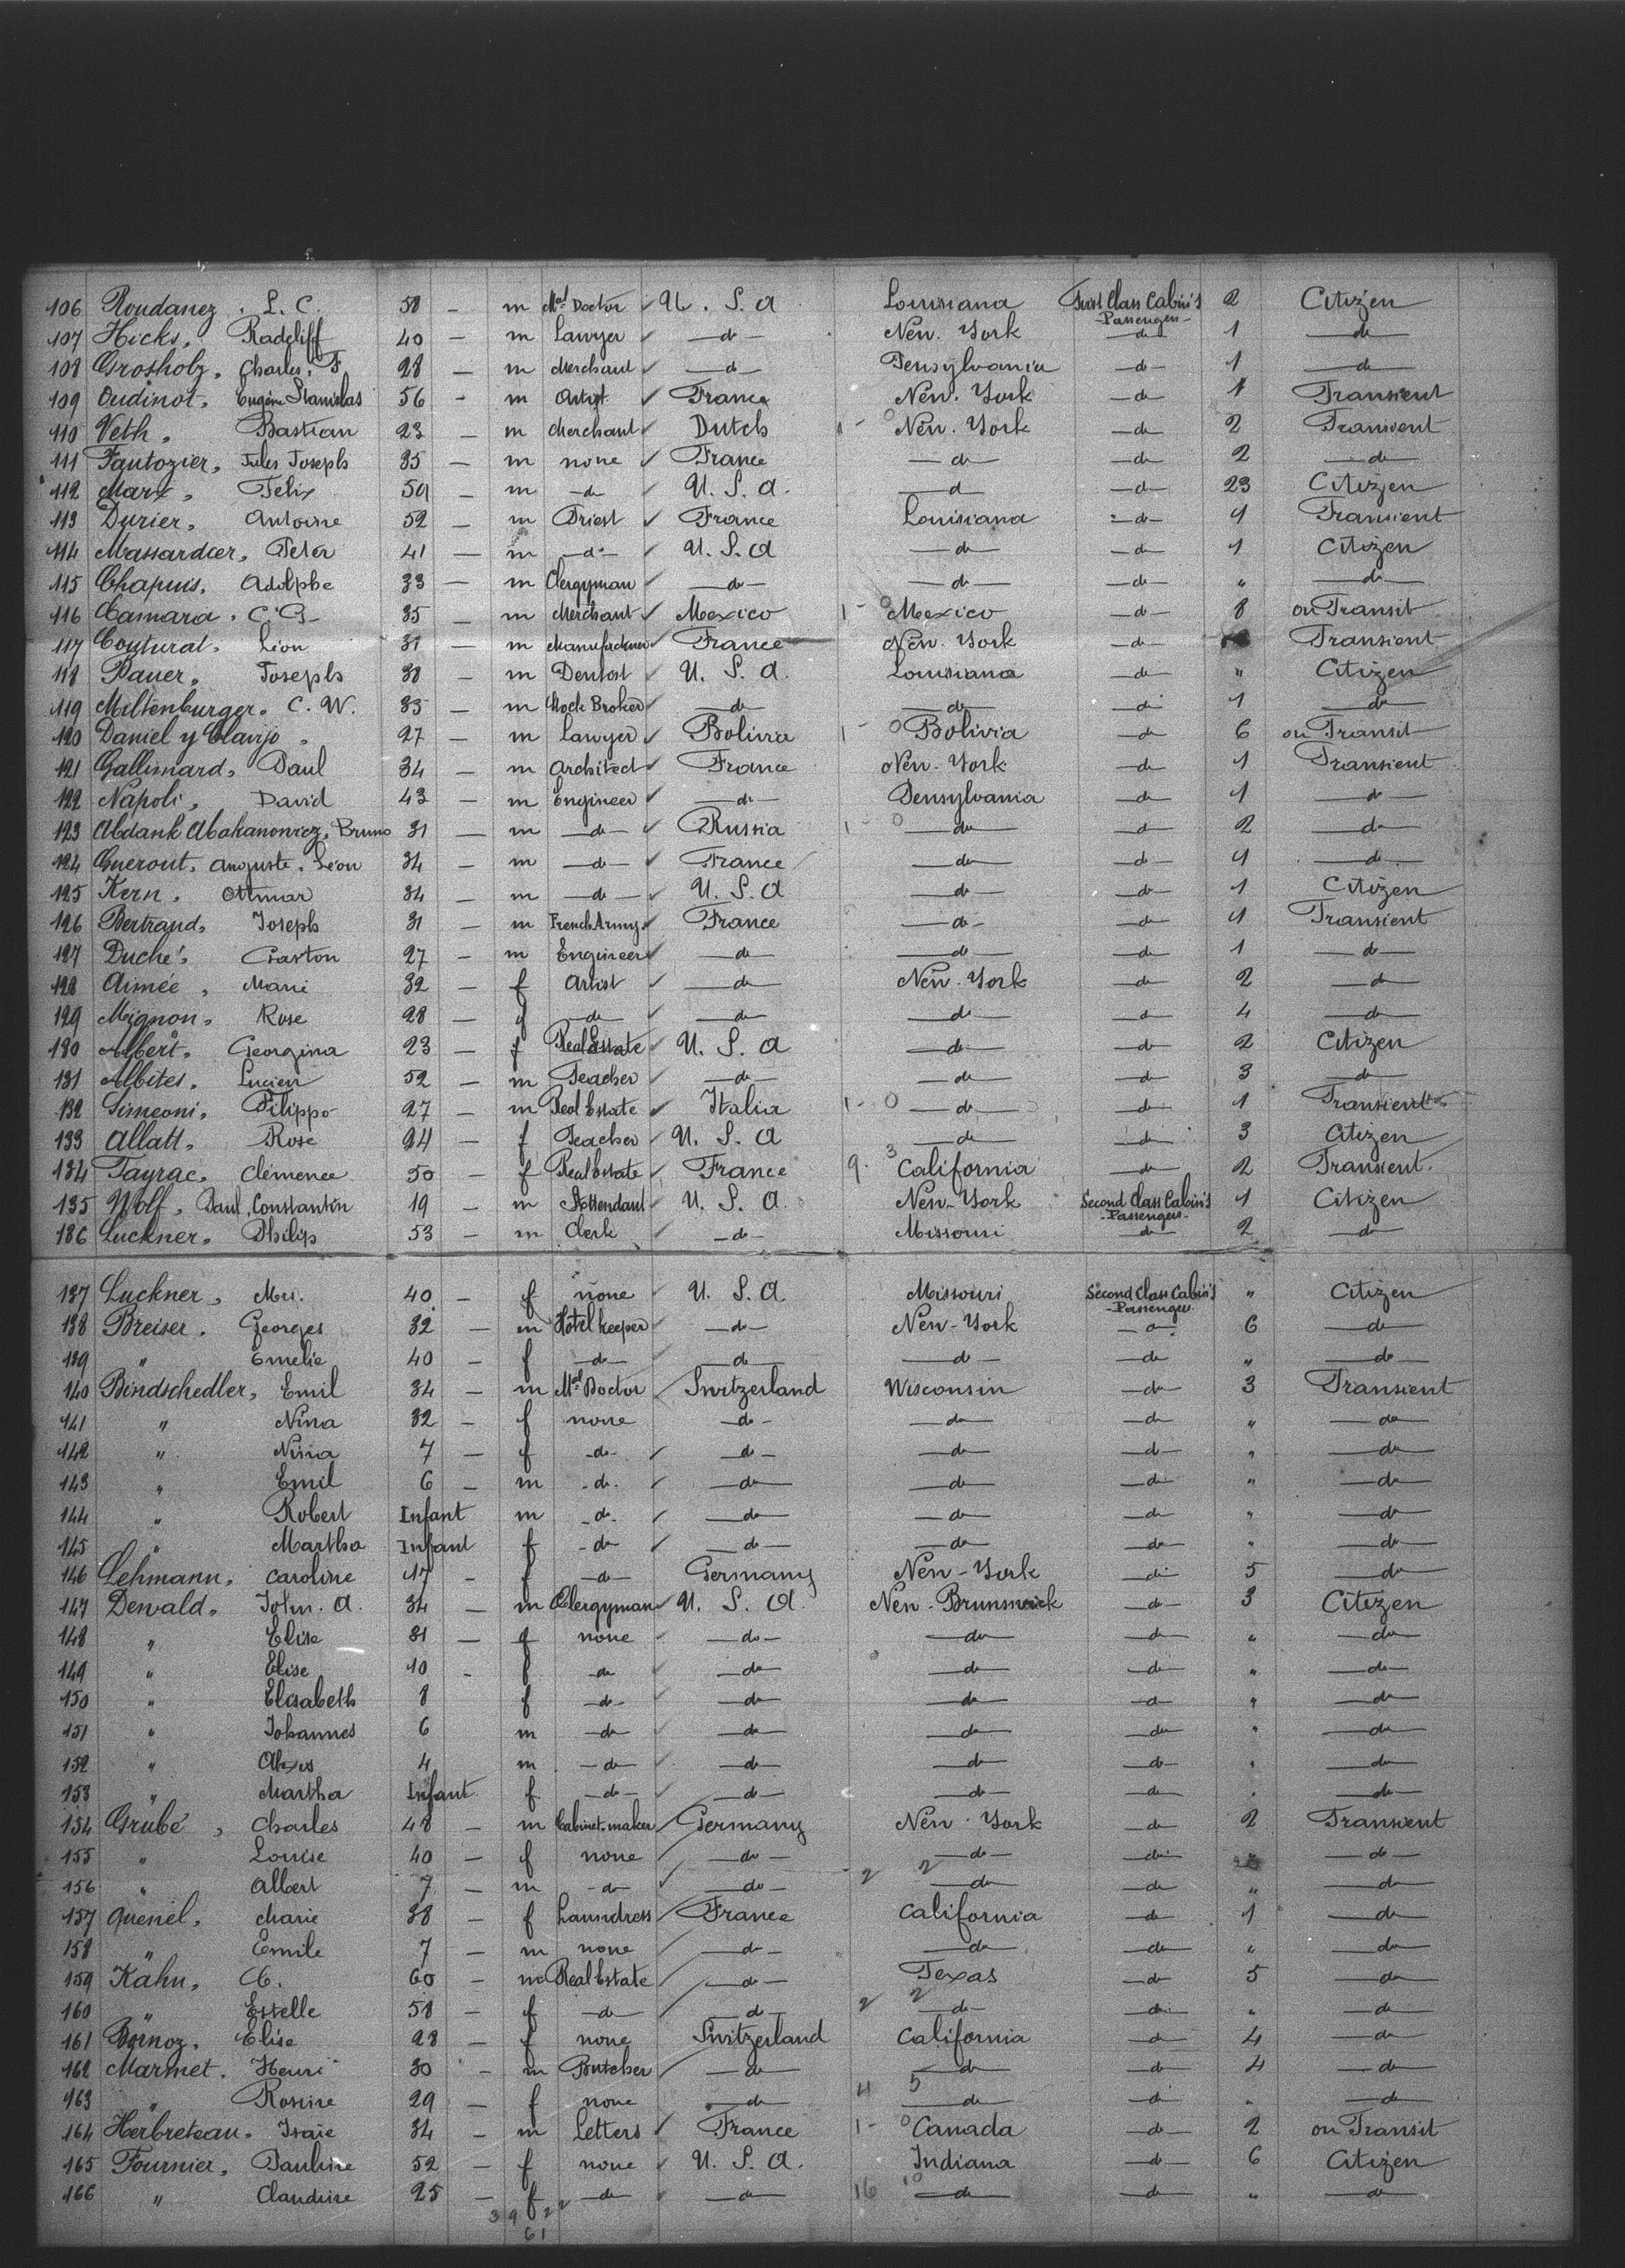 106 Roudanez, L. C. 58 - m Mal Doctor U. S. A Louisiana First Class Cabin's Passengers 2 Citizen
107 Hicks, Radcliff 40 - m Lawyer -do- New-York -do- 1 -do-
108 Grosholz, Charles, F. 28 - m Merchant -do- Pensylvania -do- 1 -do-
109 Oudinot, Eugène Stanislas 56 - m Artist France New-York -do- 1 Transient
110 Veth, Bastian 23 - m Merchant Dutch 1- 0 New-York -do- 2 Transient
111 Fantozier, Jules Joseph 35 - m none France -do- -do- 2 -do-
112 Marx, Felix 59 - m -do- U. S. A. -do- -do- 23 Citizen
113 Durier, Antoine 52 - m Priest France Louisiana -do- 1 Transient
114 Massardier, Peter 41 - m -do- U. S. A -do- -do- 1 Citizen
115 Chapuis, Adolphe 33 - m Clergyman -do- -do- -do- " -do-
116 Camara, C. G. 35 - m Merchant Mexico 1- 0 Mexico -do- 8 on Transit
117 Couturat, Léon 31 - m Manufacturer France New-York -do- Transient
118 Bauer, Joseph 38 - m Dentist U. S. A. Louisiana -do- " Citizen
119 Miltenburger, C. W. 35 - m Stock Broker -do- -do- -do- 1 -do-
120 Daniel y Clavijo 27 - m Lawyer Bolivia 1 - 0 Bolivia -do- 6 on Transit
121 Gallimard, Paul 34 - m Architect France New-York -do- 1 Transient
122 Napoli, David 43 - m Engineer -do- Pensylvania -do- 1 -do-
123 Abdank Abakanowicz, Bruno 31 - m -do- Russia 1- 0 -do- -do- 2 -do-
124 Guerout, Auguste, Léon 34 - m -do- France -do- -do- 1 -do-
125 Kern, Ottmar 34 - m -do- U. S. A -do- -do- 1 Citizen
126 Bertrand, Joseph 31 - m French Army France -do- -do- 1 Transient
127 Duché, Gaston 27 - m Engineer -do- -do- -do- 1 -do-
128 Aimée, Marie 32 - f Artist -do- New-York -do- 2 -do-
129 Mignon, Rose 28 - f -do- -do- -do- -do- 4 -do-
130 Albert, Georgina 23 - f Real Estate U. S. A -do- -do- 2 Citizen
131 Albites, Lucien 52 - m Teacher -do- -do- -do- 3 -do-
132 Simeoni, Filippo 27 - m Real Estate Italia 1- 0 -do- -do- 1 Transient
133 Allatt, Rose 24 - f Teacher U. S. A -do- -do- 3 Citizen
134 Tayrac, Clémence 50 - f Real Estate France 9. 3 California -do- 2 Transient.
135 Wolf, Paul, Constantin 19 - m Attendant U. S. A. New-York Second Class Cabin's Passengers 1 Citizen
136 Luckner, Philip 53 - m Clerk -do- Missouri -do- 2 -do-
137 Luckner, Mrs. 40 - f none U. S. A. Missouri Second Class Cabin's Passenger " Citizen
138 Breiser, Georges 32 - m Hotel keeper -do- New-York -do- 6 -do-
139 " Emelie 40 - f -do- -do- -do- -do- " -do-
140 Bindschedler, Emil 34 - m Mal Doctor Switzerland Wisconsin -do- 3 Transient
141 " Nina 32 - f none -do- -do- -do- " -do-
142 " Nina 7 - f -do- -do- -do- -do- " -do-
143 " Emil 6 - m -do- -do- -do- -do- " -do-
144 " Robert Infant m -do- -do- -do- -do- " -do-
145 " Martha Infant f -do- -do- -do- -do- " -do-
146 Lehmann, Caroline 17 - f -do- Germany New-York -do- 5 -do-
147 Dewald, John. A. 34 - m Clergyman U. S. A. New-Brunswick -do- 3 Citizen
148 " Elise 31 - f none -do- -do- -do- " -do-
149 " Elise 10 - f -do- -do- -do- -do- " -do-
150 " Elisabeth 8 f -do- -do- -do- -do- " -do-
151 " Johannes 6 m -do- -do- -do- -do- " -do-
152 " Alexis 4 m -do- -do- -do- -do- " -do-
153 " Martha Infant f -do- -do- -do- -do- " -do-
154 Grübé, Charles 48 - m Cabinet-maker Germany New-York -do- 2 Transient
155 " Louise 40 - f none -do- -do- -do- -do-
156 " Albert 7 - m -do- -do- 2 2 -do- -do- " -do-
157 Quenel, Marie 38 - f Laundress France California -do- 1 -do-
158 " Emile 7 - m none -do- -do- -do- " -do-
159 Kahn, C. 60 - m Real Estate -do- Texas -do- 5 -do-
160 " Estelle 58 - f -do- -do- 2 2 -do- -do- " -do-
161 Bornoz, Elise 28 - f none Switzerland California -do- 4 -do-
162 Marmet, Henri 30 - m Butcher -do- -do- -do- 4 -do-
163 " Rosine 29 - f none -do- 4 5 -do- -do- " -do-
164 Herbreteau, Isaïe 34 - m Letters France 1- 0 Canada -do- 2 on Transit
165 Fournier, Pauline 52 - f none U. S. A. Indiana -do- 6 Citizen
166 " Claudine 25 - f -do- -do- 16 10 -do- -do- " -do-
39 22
61